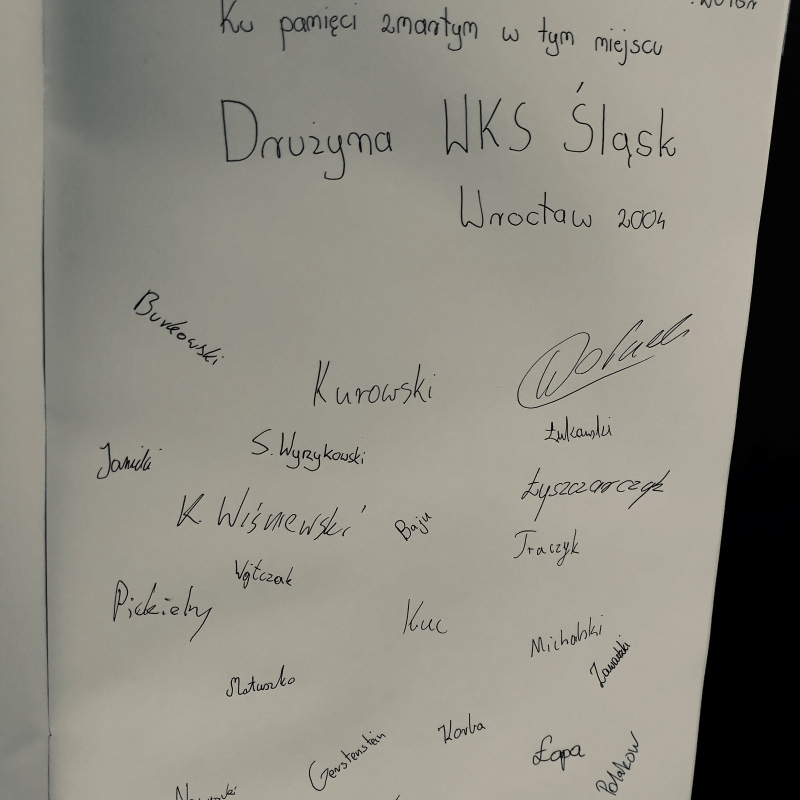 Ku pamięci zmarłym w tym miejscu
Drużyna WKS Śląsk
Wrocław 2004
Burkowski
Kurowski
Łukawski
Janicki
S. Wyrzykowski
Łyszczarczyk
K. Wiśniewski
Baju
Traczyk
Wójtczak
Piekielny
Kuc
Michalski
Zawadzki
Matuszko
Korba
Gerstenstein
Łapa
Polakow